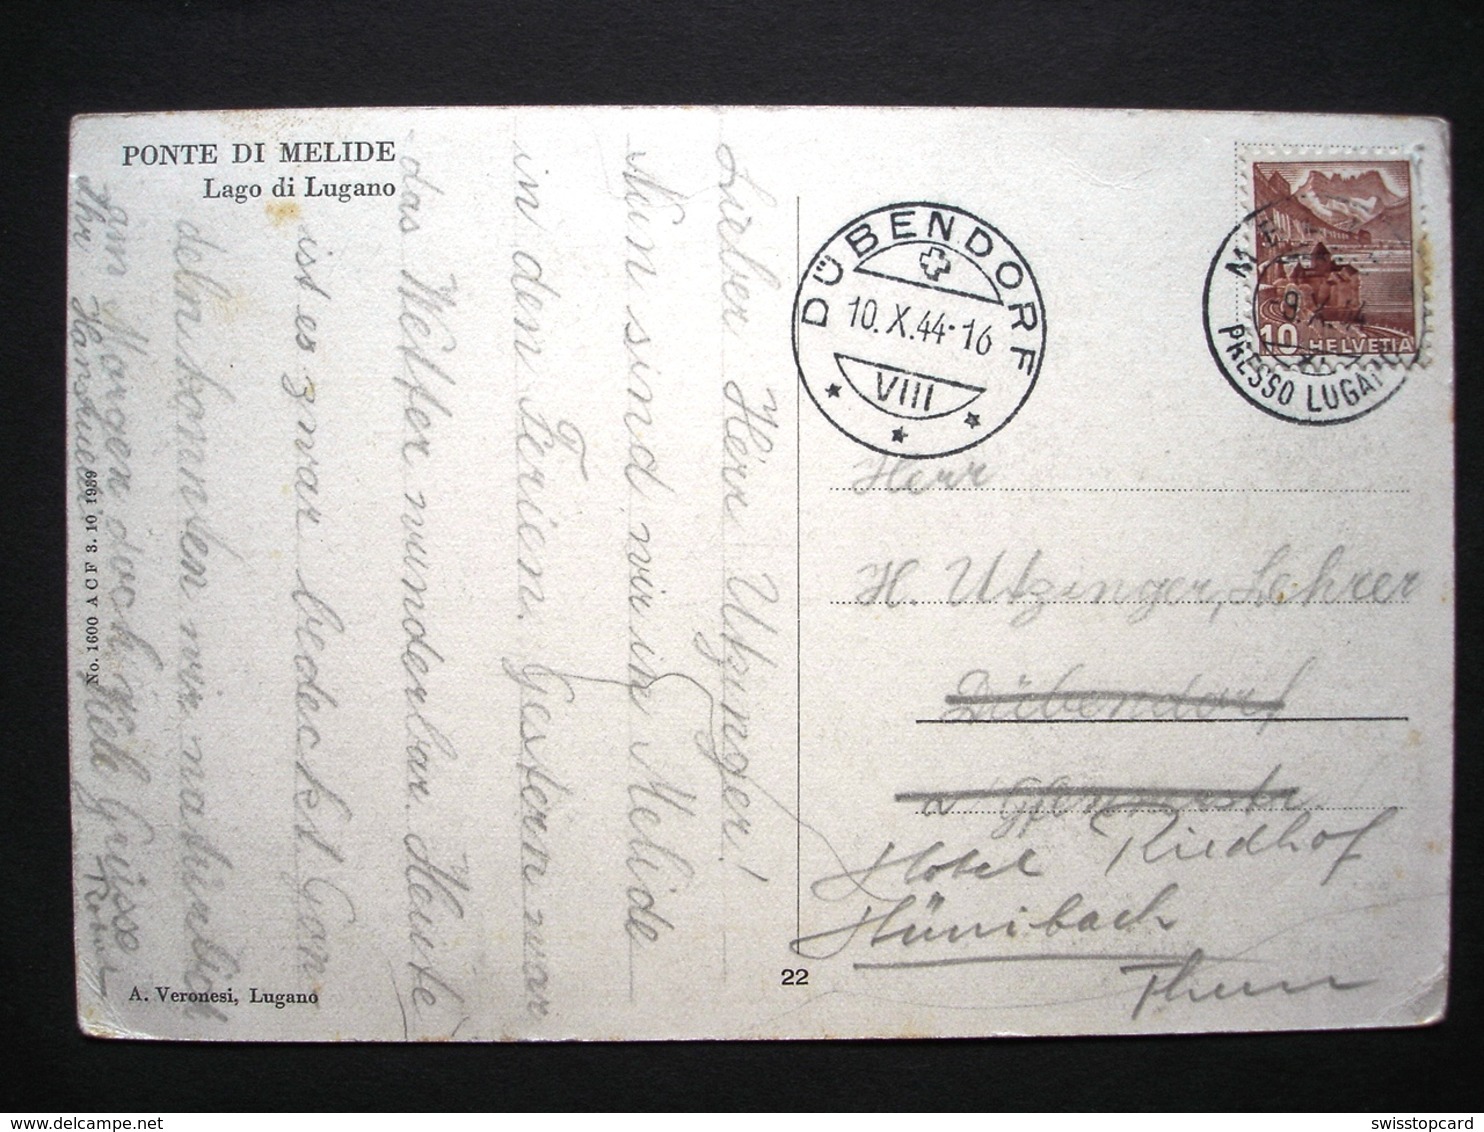 PONTE DI MELIDE
Lago di Lugano
Lieber Herr Utzinger!
Nun sind wir in Melide
in den Ferien. Gestern war
das Wetter wunderbar. Heute
ist es zwar bedeckt. Gon
deln konnten wir natürlich
am Morgen doch. Viele Grüsse
Ihr Hansruedi
No. 1600 A C F 3. 10 1939
A. Veronesi, Lugano
22
DÜBENDORF
10. X. 44-16
VIII
9. X. 44
PRESSO LUGANO
10 HELVETIA
Herr
H. Utzinger, Lehrer
Dübendorf
Hotel Riedhof
Hünibach
Thun
swisstopcard